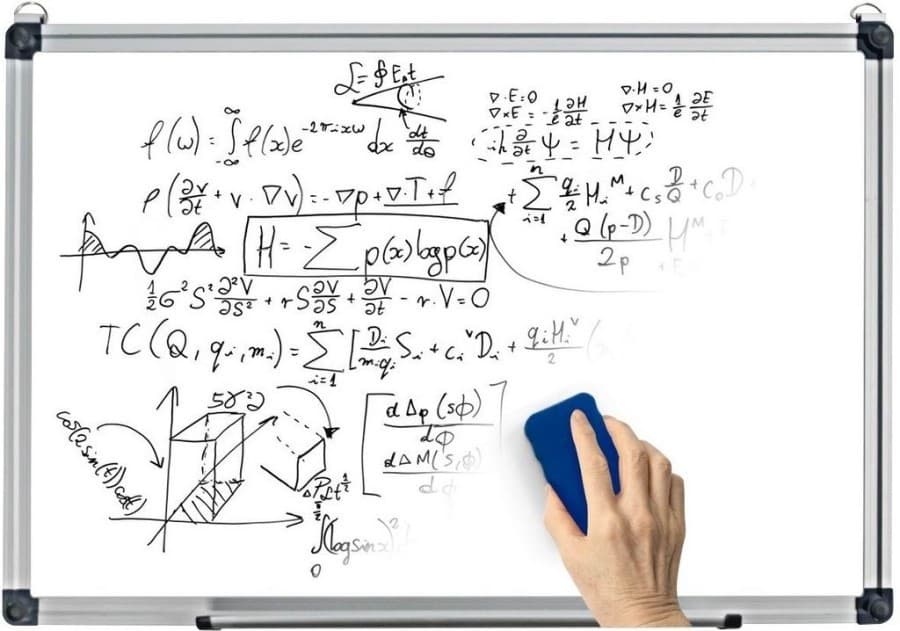 L = ∮ E, t
f(ω) = ∫_{-∞}^{∞} f(x)e^{-2πixω} dx
dt/dθ
∇·E=0 ∇·H=0
∇×E = -1/e ∂H/∂t ∇×H = 1/e ∂E/∂t
iħ ∂/∂t Ψ = HΨ
ρ(∂v/∂t + v · ∇v) = -∇p + ∇·T + f
+ Σ_{i=1}^{n} q_i/2 H_i^M + c_s D/Q + c_o D
+ Q(p-D)/2p H^M
H = -Σ p(x) log p(x)
1/2 σ² S² ∂²V/∂S² + r S ∂V/∂S + ∂V/∂t - r·V = 0
TC(Q, q_i, m_i) = Σ_{i=1}^{n} [D_i/m_i q_i S_i + c_i^v D_i + q_i H_i^v/2 (
cos(2sin(t))cos(t)
d Δp (sϕ)/dϕ
d Δ M(s,ϕ)/dϕ
∫_0 (log sin x)²